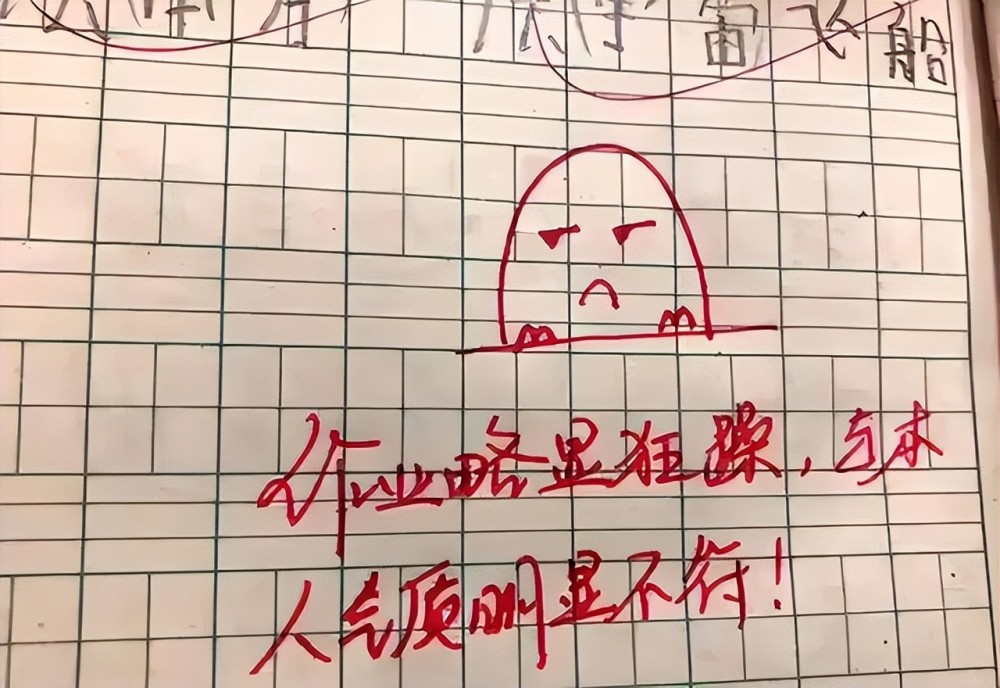 宙飞船
作业略显狂躁，与本
人气质明显不符！